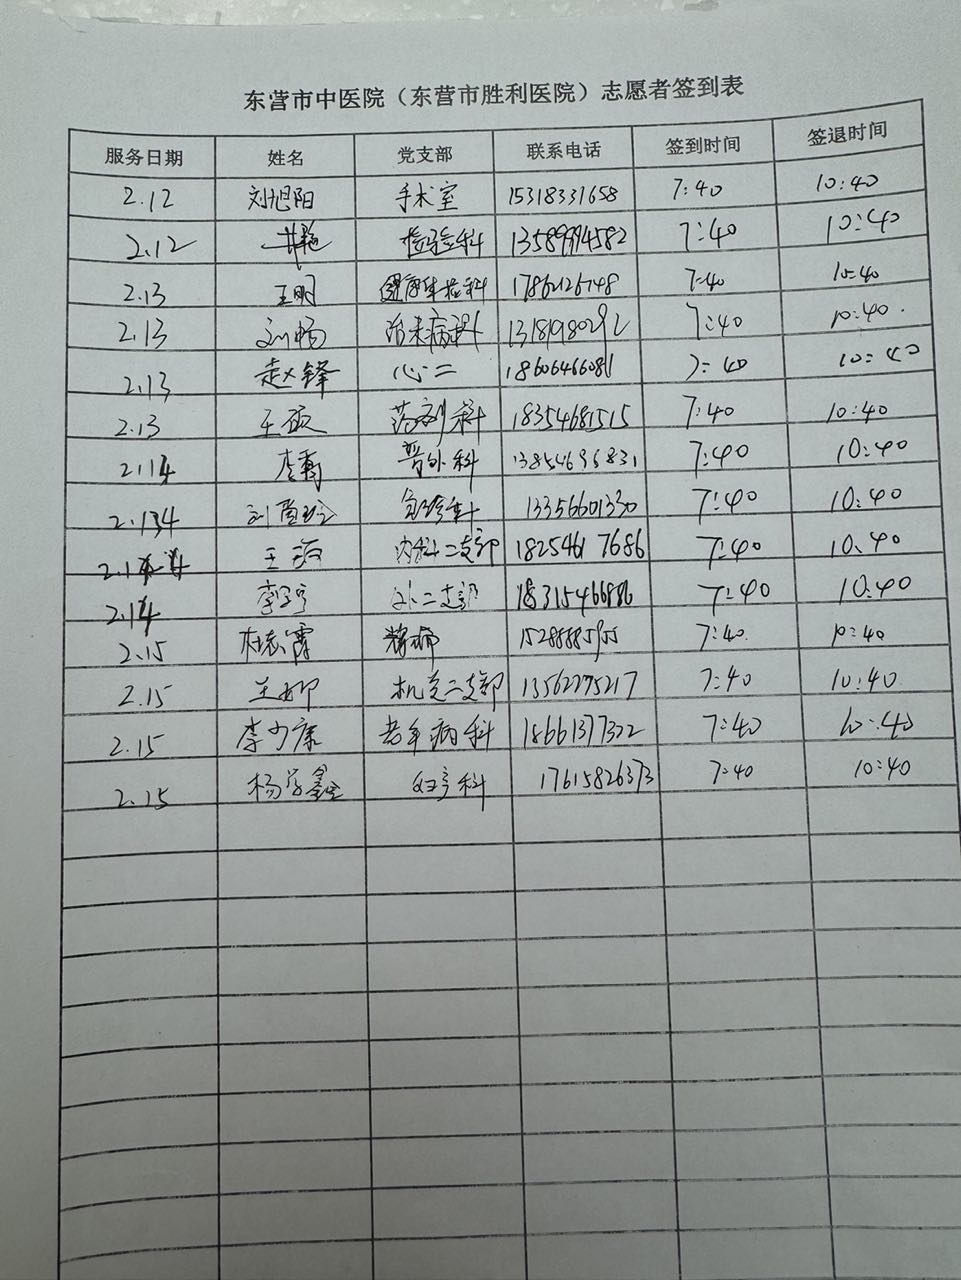 东营市中医院（东营市胜利医院）志愿者签到表
服务日期 姓名 党支部 联系电话 签到时间 签退时间
2.12 刘旭阳 手术室 15318331658 7:40 10:40
2.12 检验科 13589994582 7:40 10:40
2.13 王明 健康体检科 17862126748 7:40 10:40
2.13 刘畅 治未病科 1318198029 7:40 10:40
2.13 赵锋 心二 18606466086 7:40 10:40
2.13 王 药剂科 18354681515 7:40 10:40
2.14 李 普外科 13854696831 7:40 10:40
2.134 刘 急诊科 13356601330 7:40 10:40
王 内科二支部 18254617686 7:40 10:40
2.14 李 外二支部 18315466886 7:40 10:40
2.15 杜 7:40 10:40
2.15 王 机关二支部 13562295217 7:40 10:40
2.15 李少康 老年病科 18661377322 7:40 10:40
2.15 杨学鑫 妇产科 17615826373 7:40 10:40